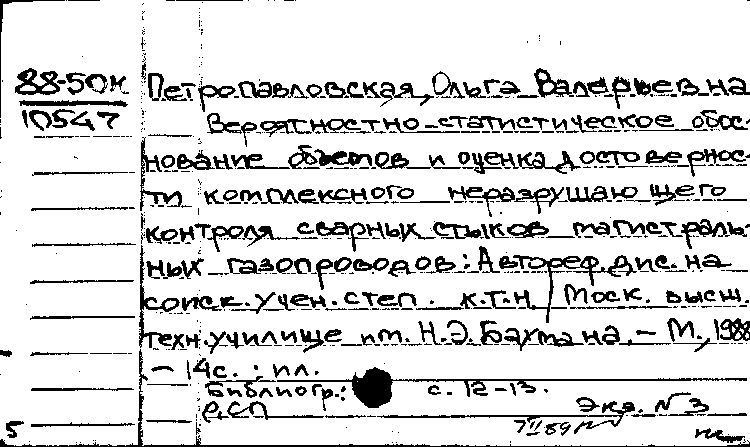 88-50к
10547
Петропавловская, Ольга Валерьевна
Вероятностно-статистическое обос-
нование объемов и оценка достовернос-
ти комплексного неразрушающего
контроля сварных стыков магистраль-
ных газопроводов: Автореф. дис. на
соиск. учен. степ. к.т.н. / Моск. высш.
техн. училище им. Н.Э. Баумана. - М., 1988
- 14с. : ил.
Библиогр.: с. 12-13.
Экз. N 3
5